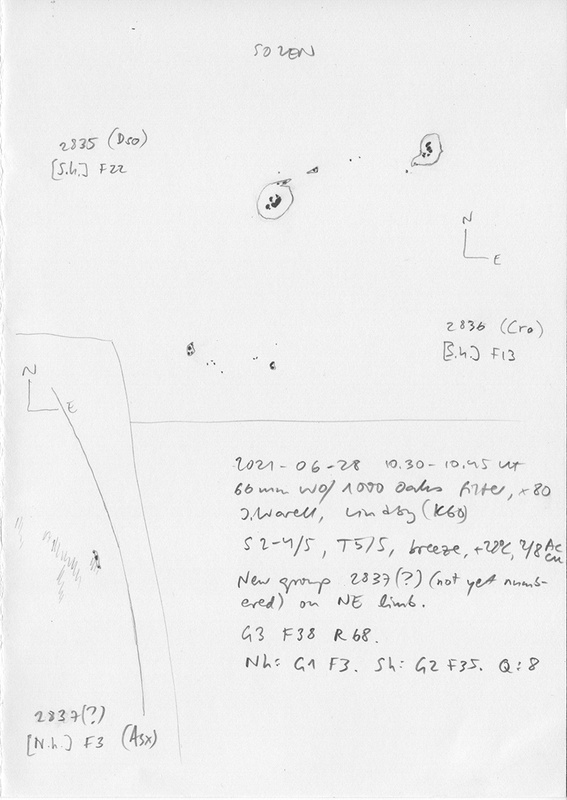 SOLEN
2835 (Dso)
[S.h.] F22
N
E
2836 (Cro)
[S.h.] F13
N
E
2021-06-28 10.30-10.45 UT
60 mm w/ 1000 Oaks filter, ×80
J. Warell, Lindby (K60)
S 2-4/5, T5/5, breeze, +22°C, 7/8 Ac Cu
New group 2837(?) (not yet numb-
ered) on NE limb.
G3 F38 R68.
Nh: G1 F3. Sh: G2 F35. Q: 8
2837(?)
[N.h.] F3 (Asx)